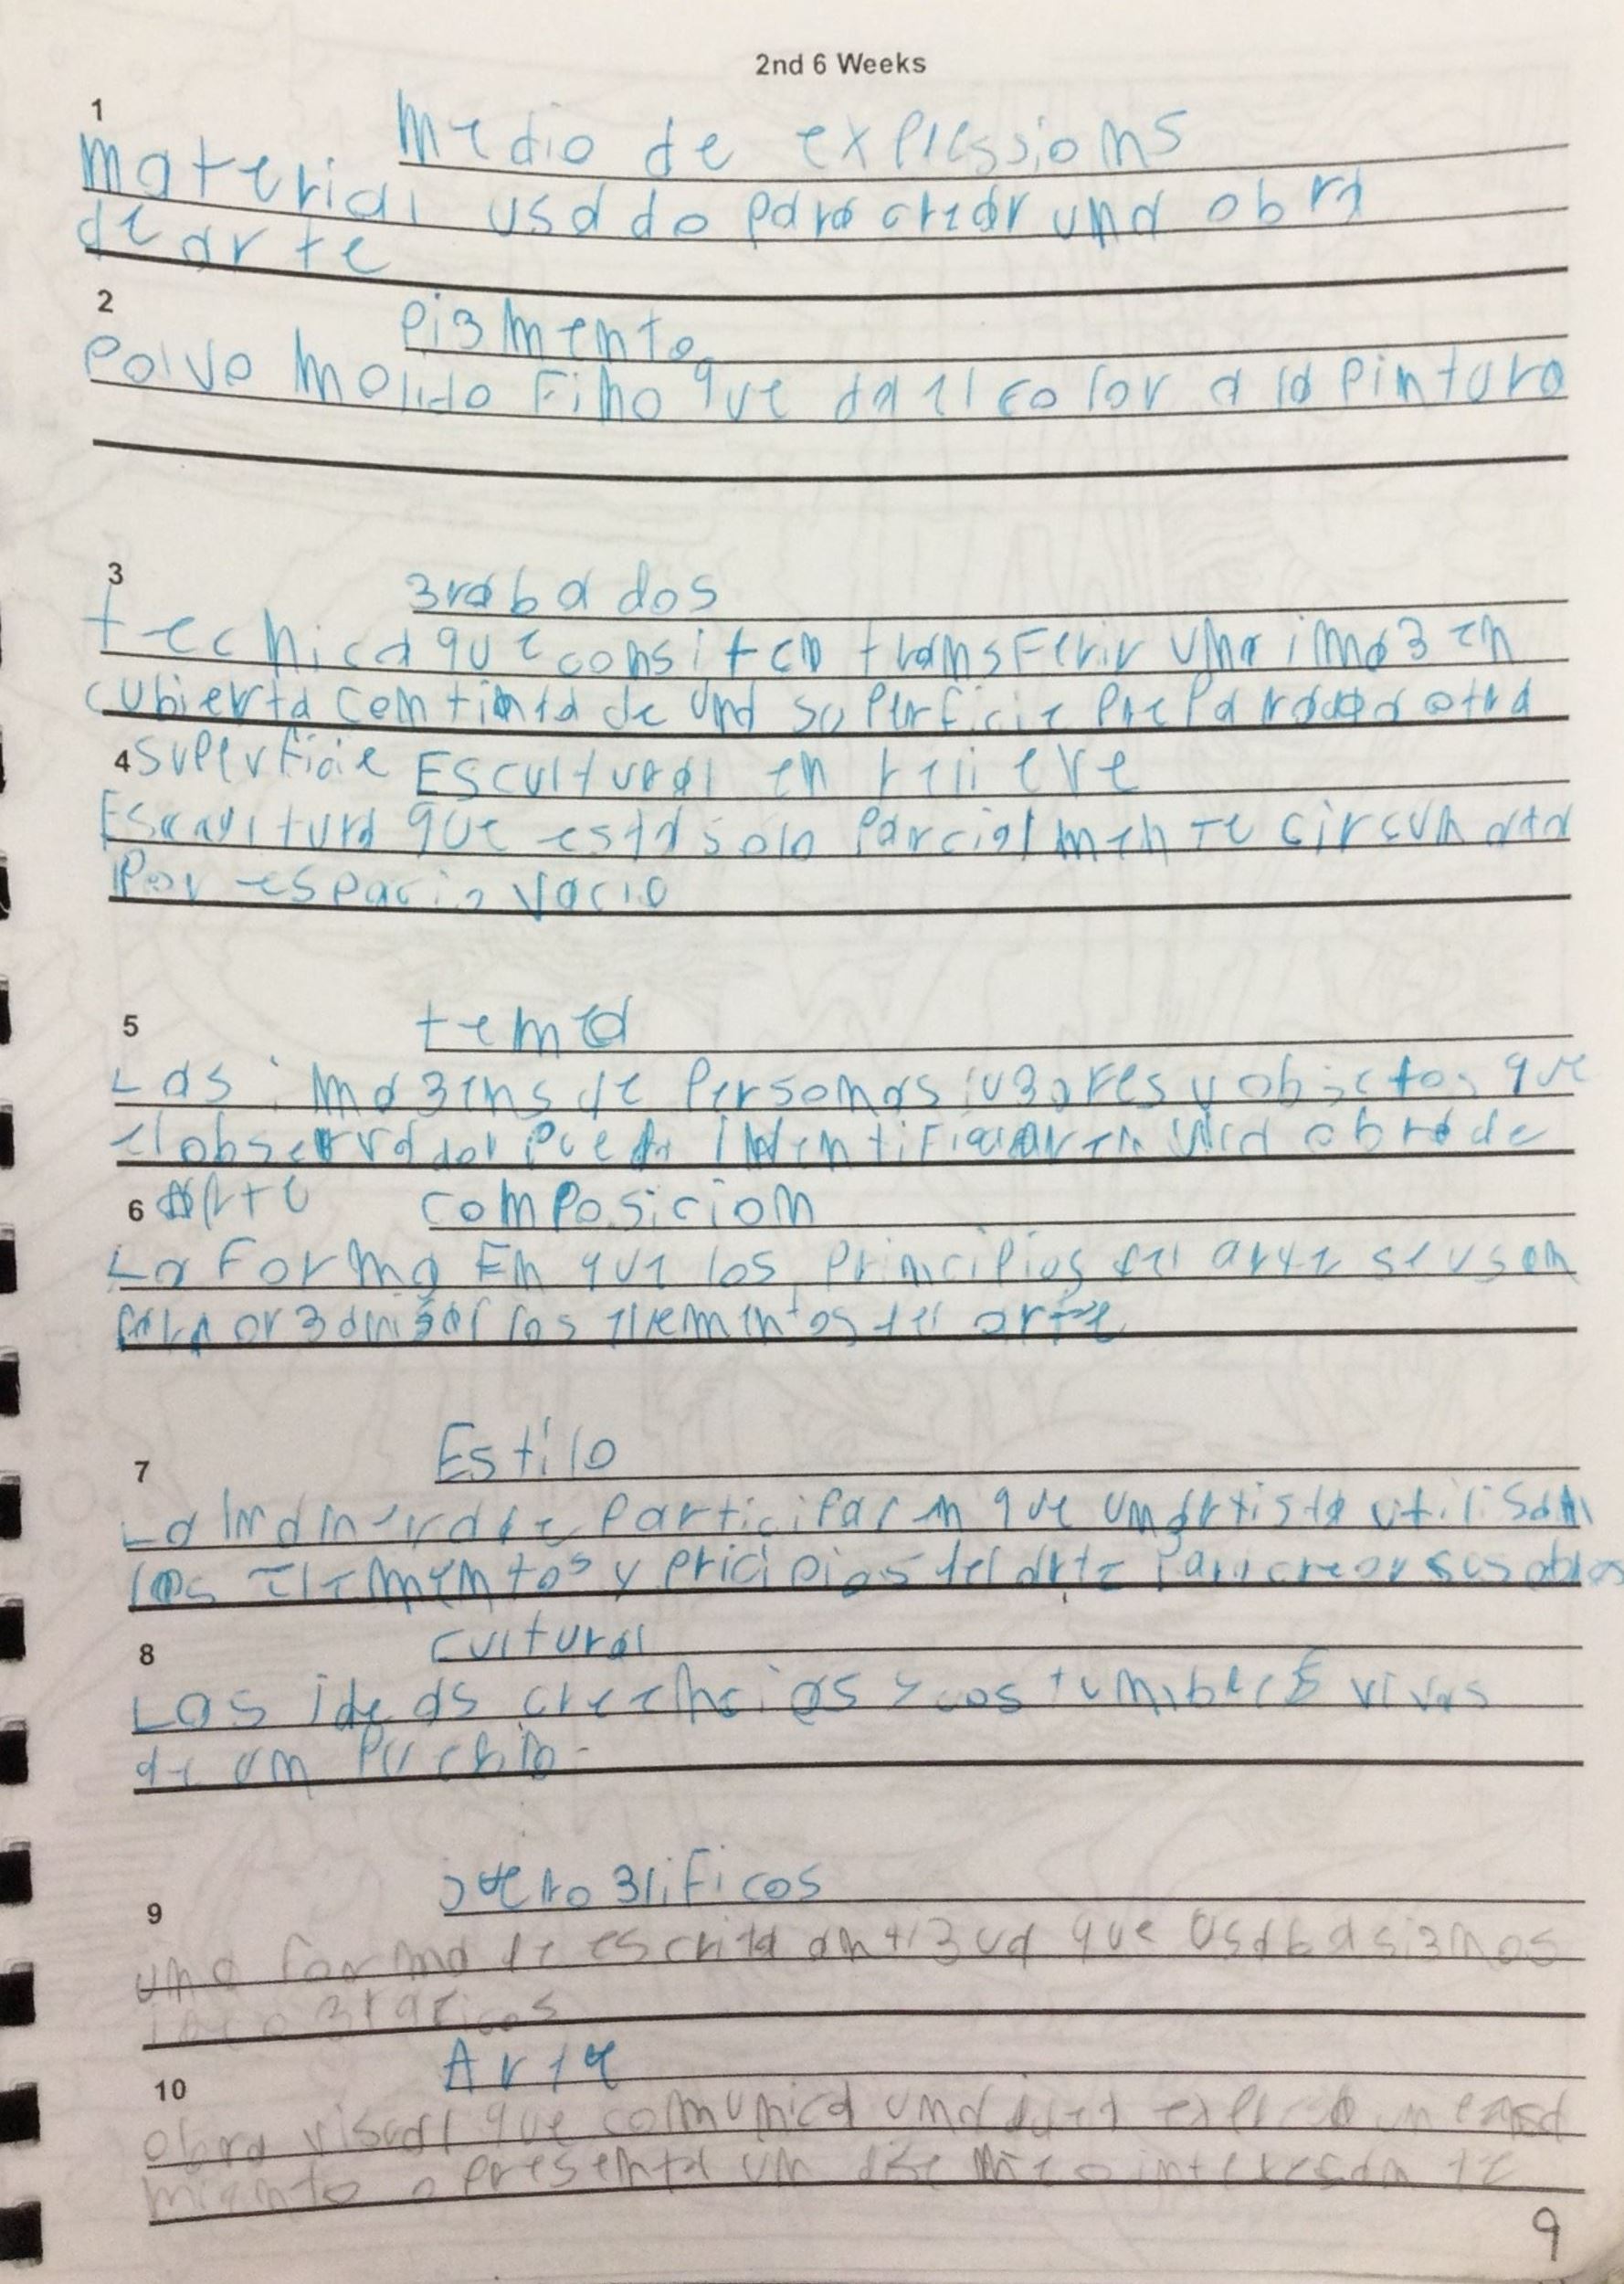 2nd 6 Weeks
1
medio de expressions
material usado para crear una obra
de arte
2
Pigmento
Polvo molido Fino que da el color a la pintura
3
grabados
technica que consit en transferir una imagen
cubierta con tinta de una superficie preparada a otra
4 superficie Escultural en relieve
Escultura que está solo parcialmente circundada
Por espacio vacio
5
tema
Las imagens de Personas lugares y objectos que
el observador puede identificar en una obra de
6 arte composicion
La Forma En que los principios del arte se usan
para organisar los elementos del arte
7
Estilo
La manera de participar en que un artista utilisan
los elementos y pricipios del arte para crear sus obras
8
cultural
Las ideas creencias y costumbres vivas
de un pueblo
9
jeroglificos
una forma de escrita antigua que usaba signos
10
Arte
obra visual que comunica una idea expresa un
miento o presenta un interesante
9